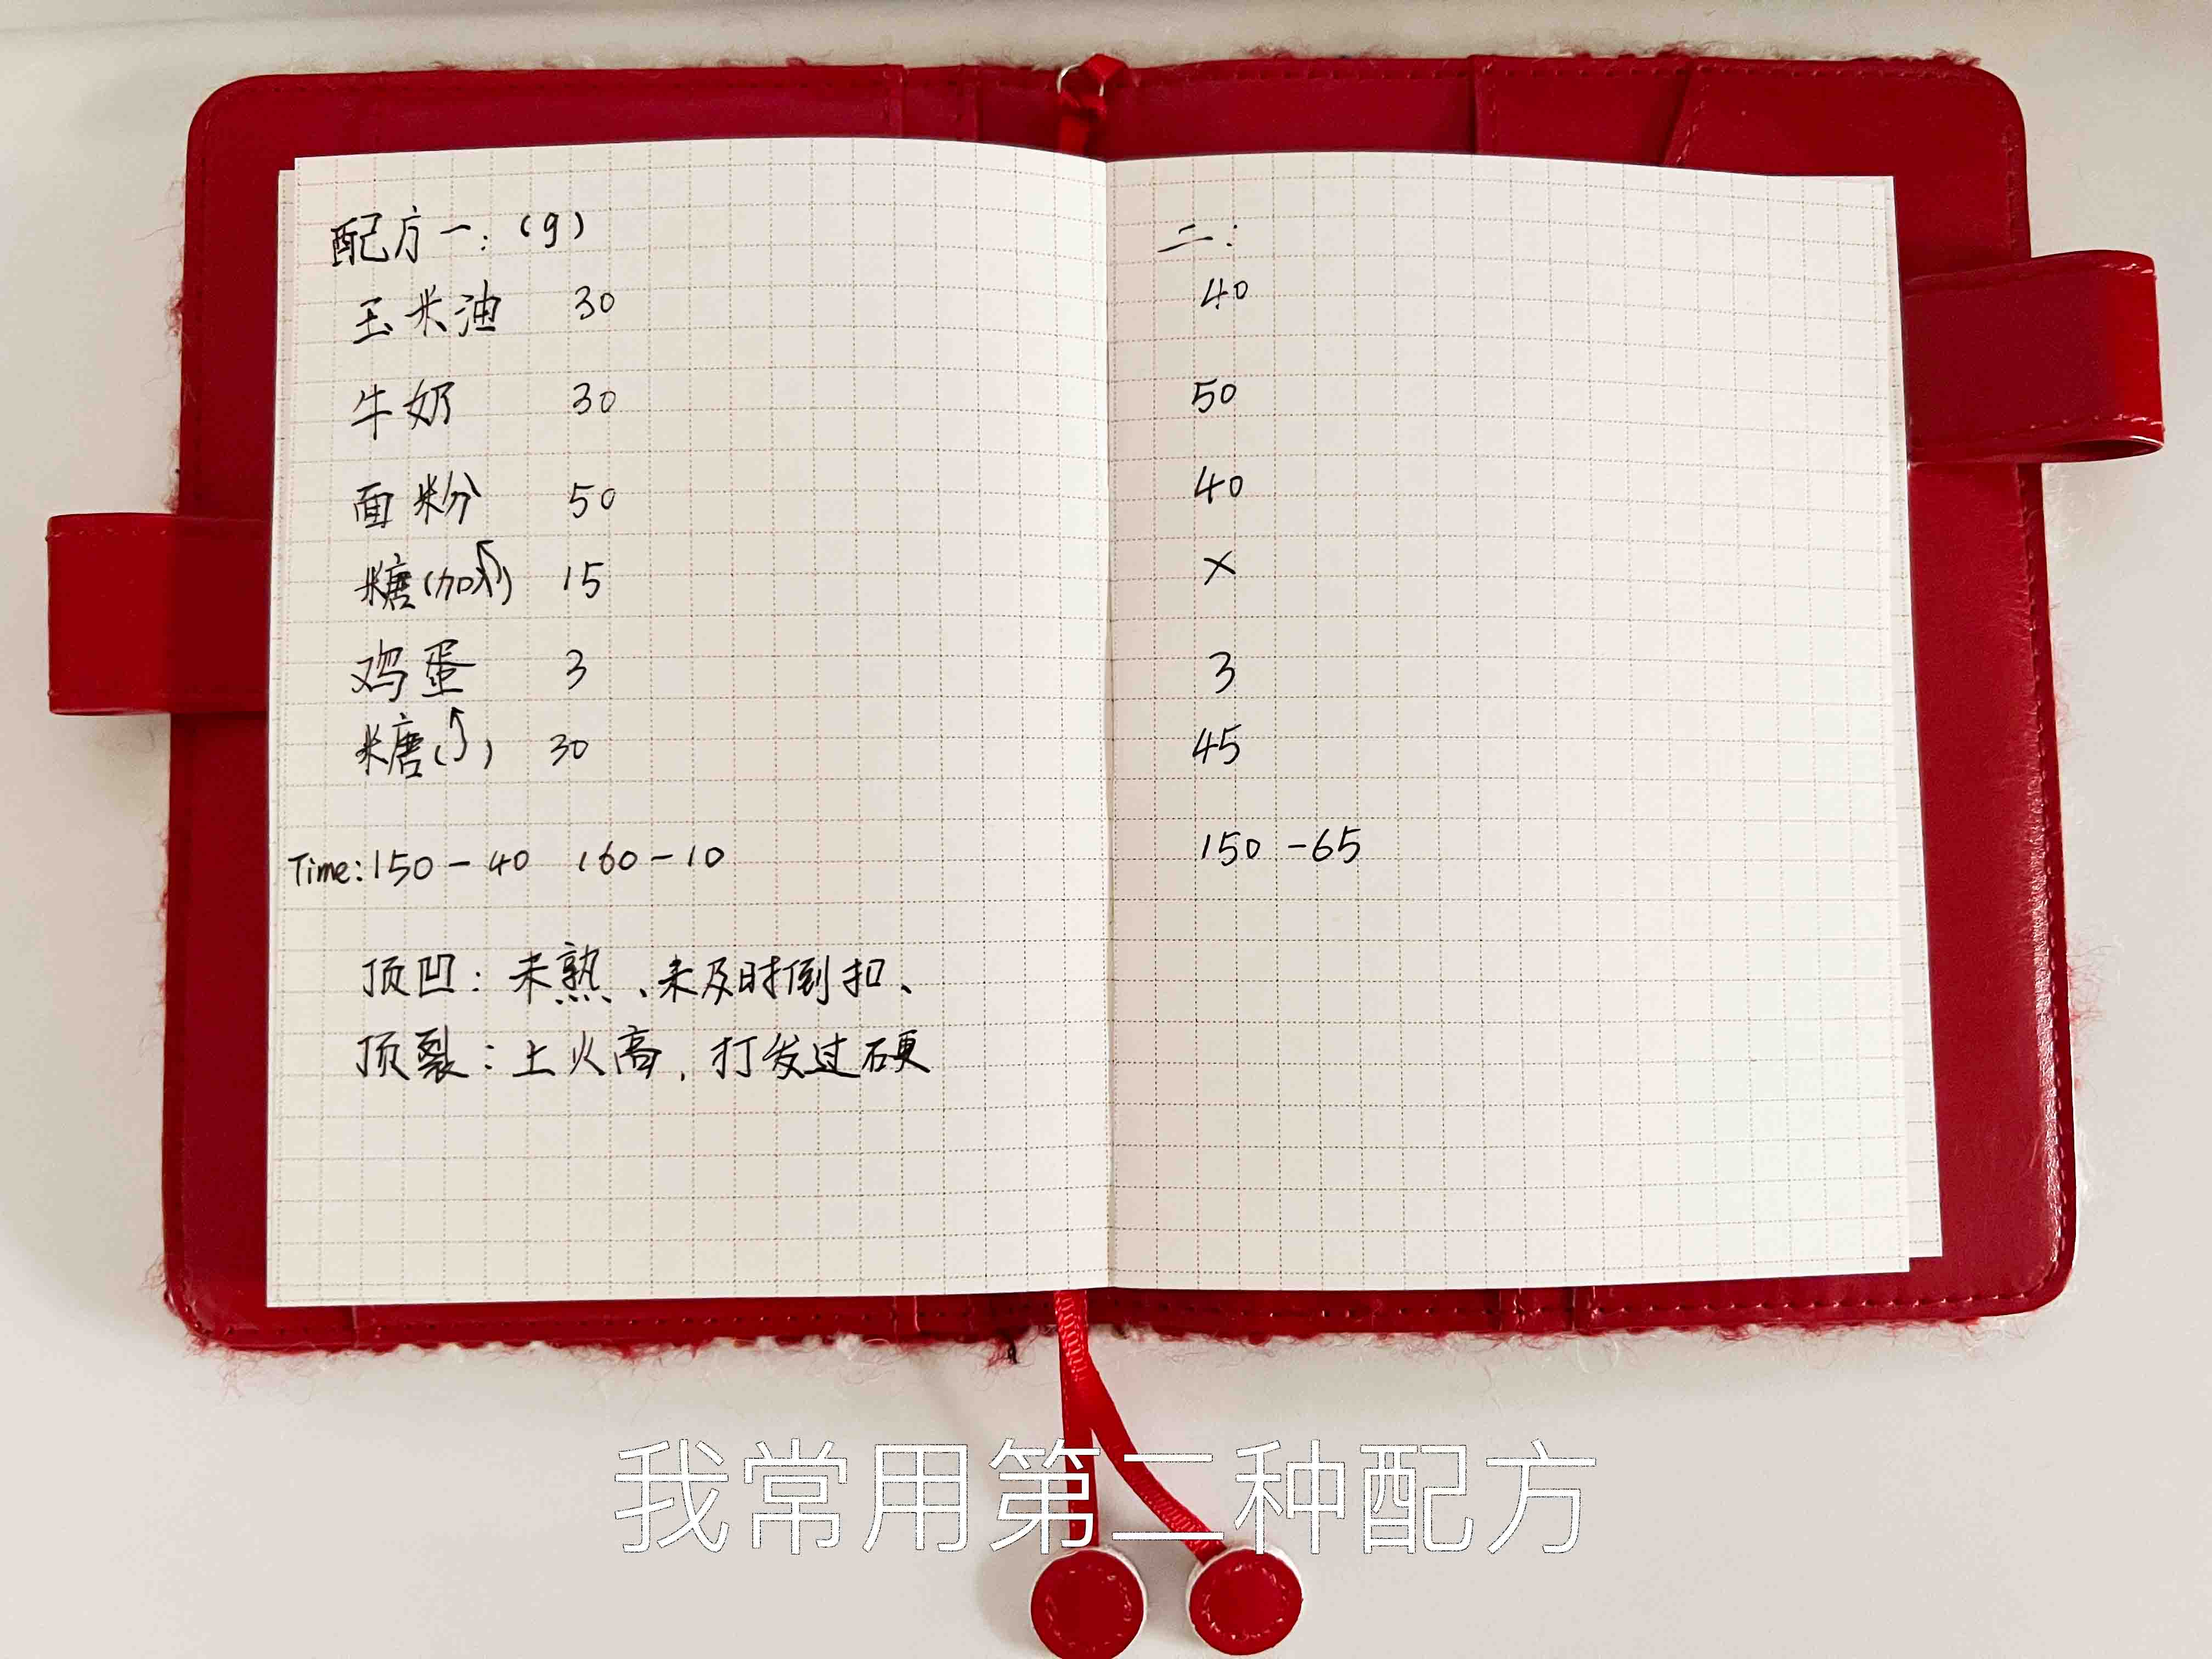 配方一:(g)
玉米油 30
牛奶 30
面粉 50
糖(加入↑) 15
鸡蛋 3
糖(↑) 30
Time:150-40 160-10
顶凹:未熟、未及时倒扣、
顶裂:上火高,打发过硬
二:
40
50
40
×
3
45
150-65
我常用第二种配方